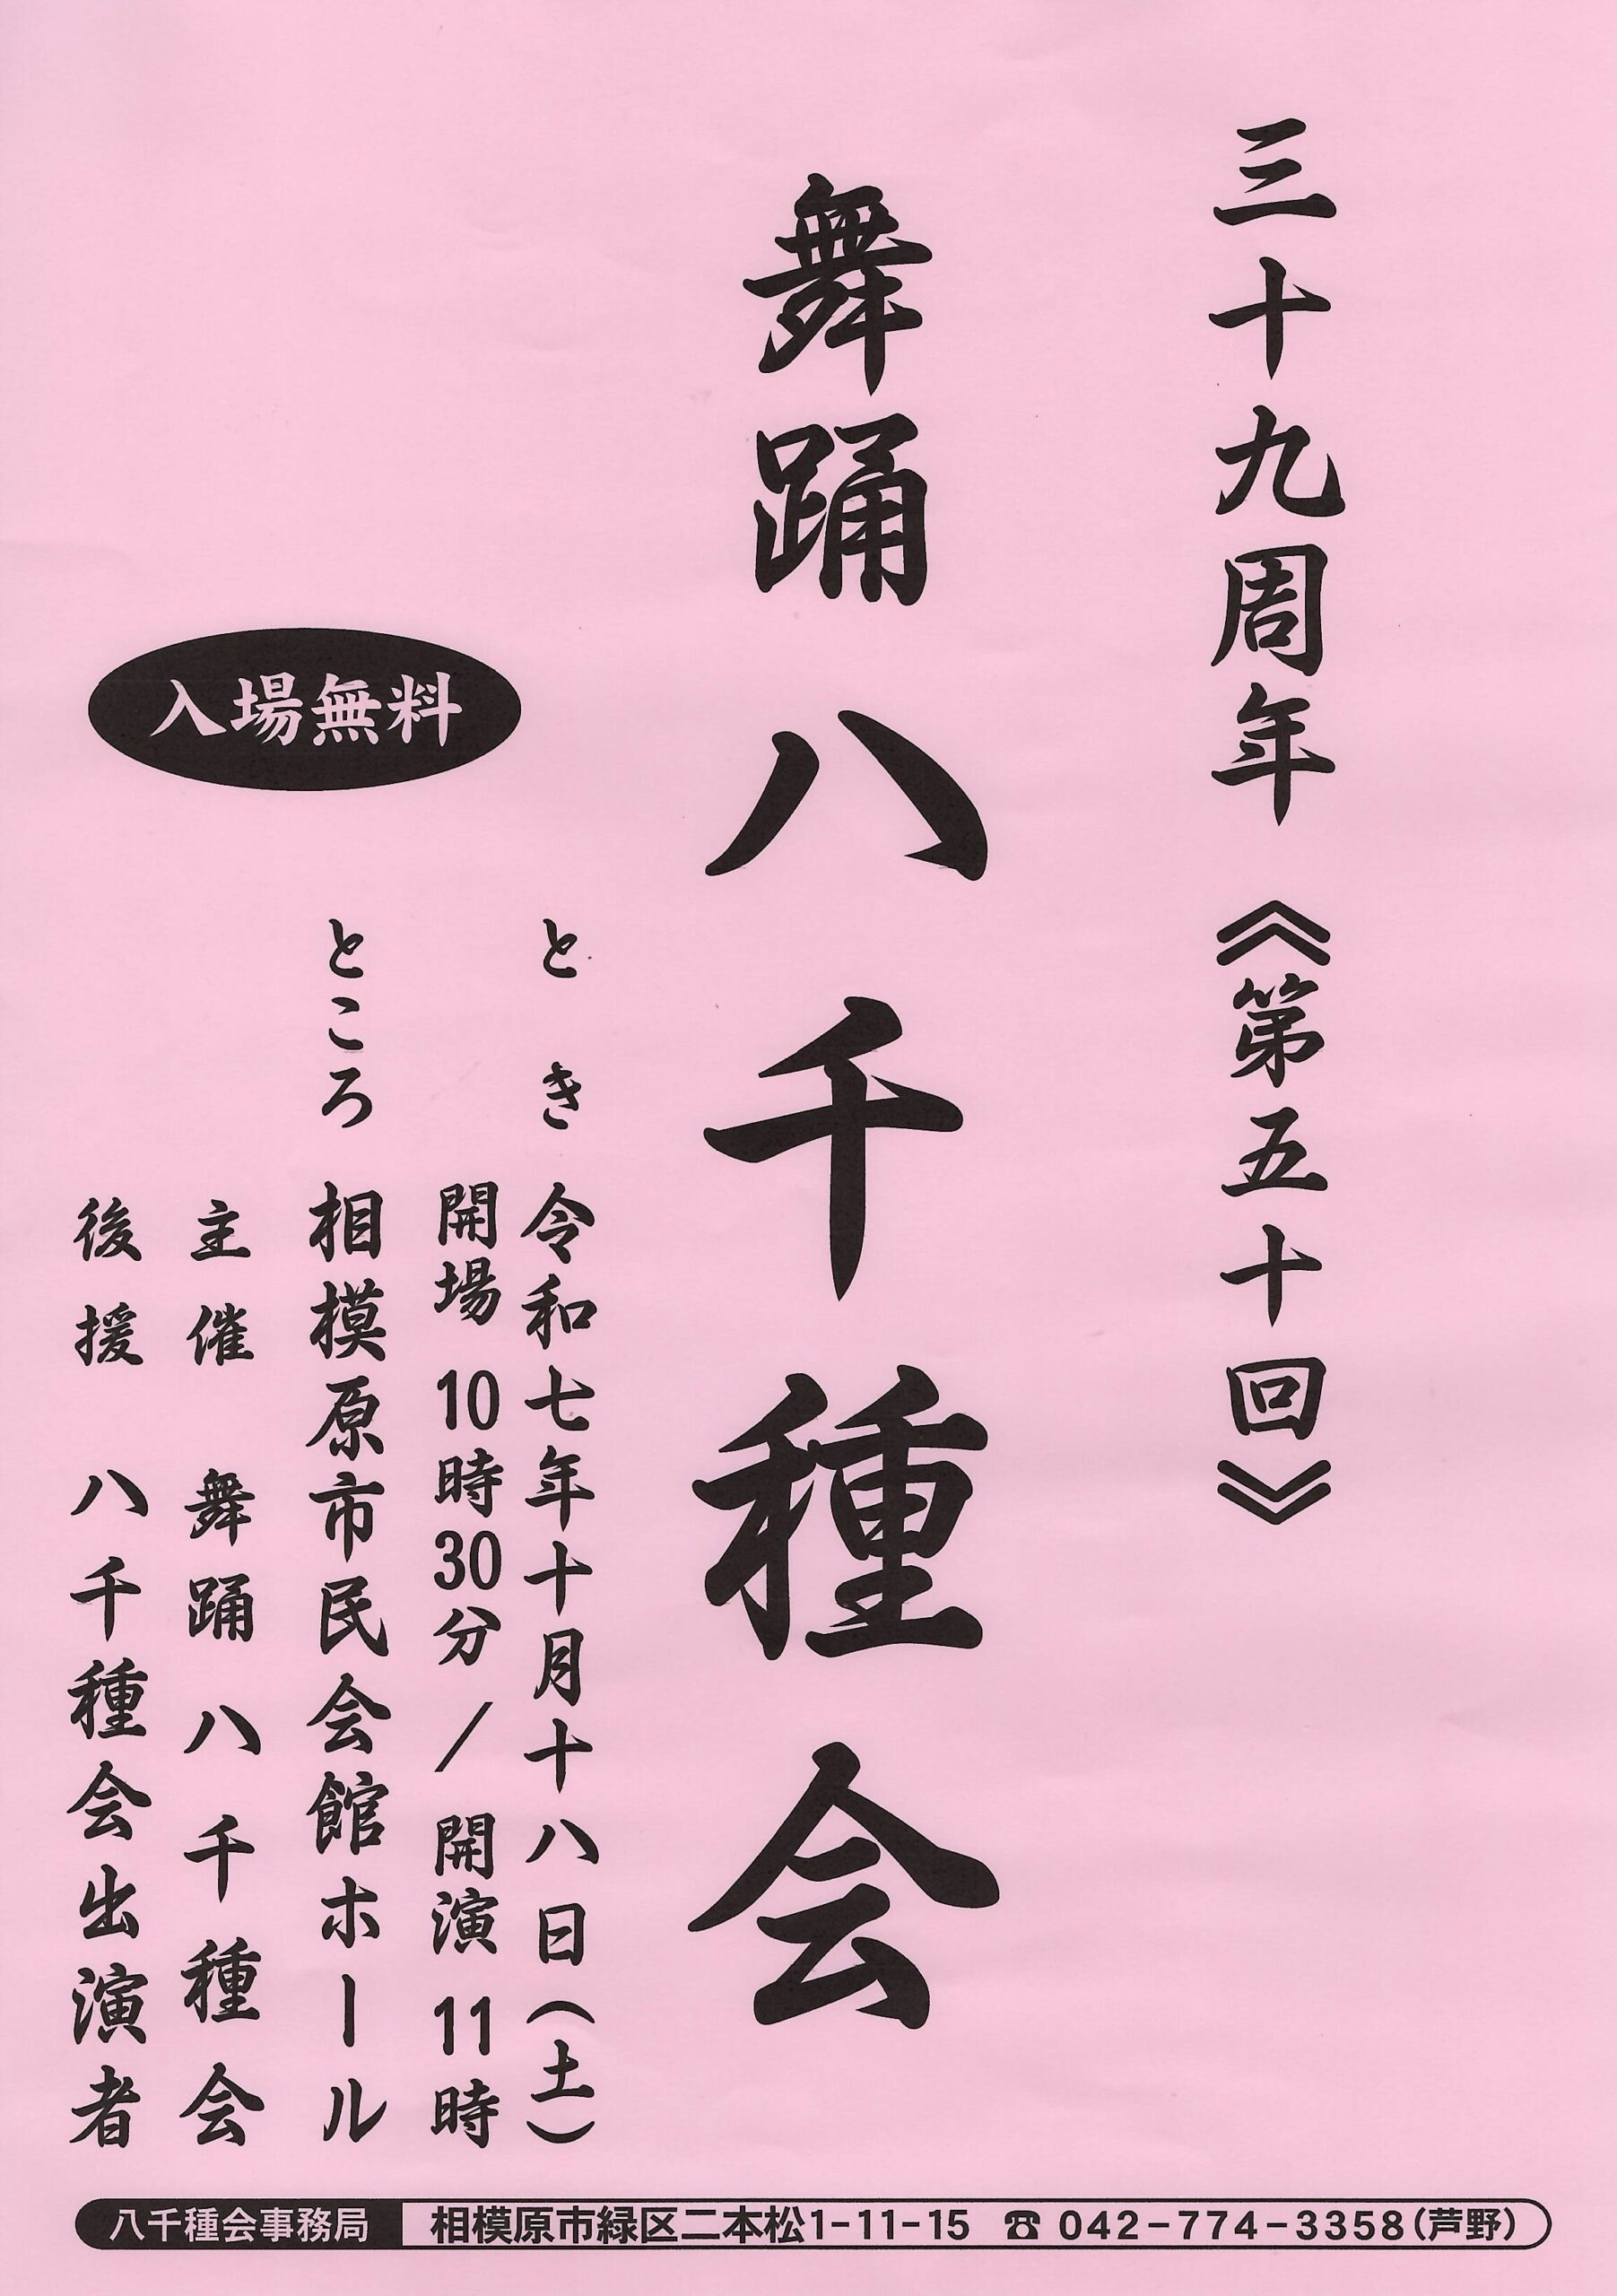 三十九周年《第五十回》
舞踊八千種会
入場無料
とき 令和七年十月十八日(土)
開場 10時30分/開演 11時
ところ 相模原市民会館ホール
主催 舞踊八千種会
後援 八千種会出演者
八千種会事務局 相模原市緑区二本松1-11-15 ☎ 042-774-3358(芦野)